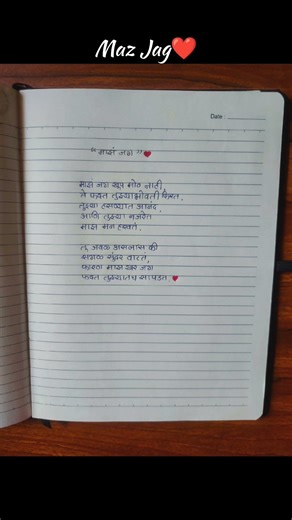 Maz Jag❤️
Date :
" माझं जग " ♥
माझं जग खूप मोठं नाही,
ते फक्त तुझ्याभोवती फिरतं.
तुझ्या हसण्यात आनंद,
आणि तुझ्या नजरेत
माझं मन हरवतं.
तू जवळ असलास की
सगळं सुंदर वाटतं,
कारण माझं खरं जग
फक्त तुझ्यातच सापडतं. ♥